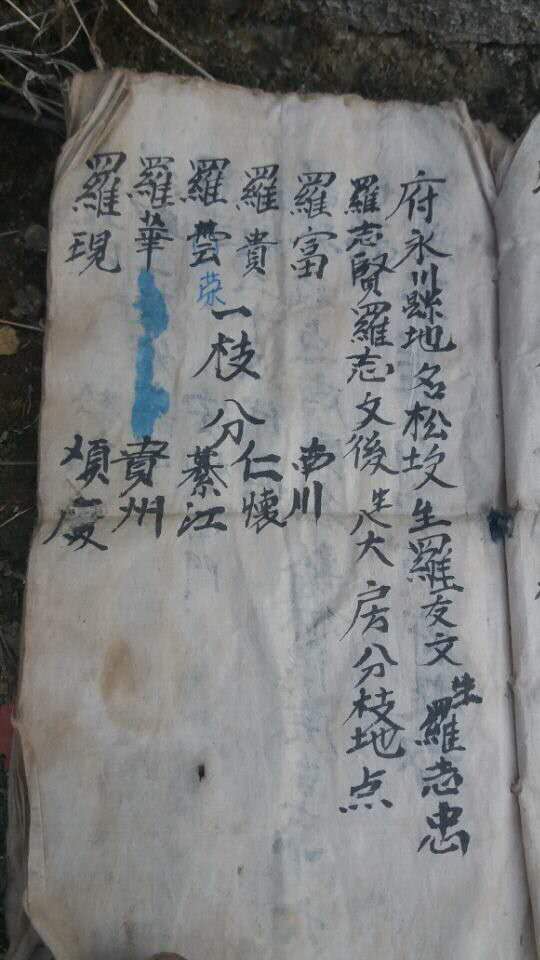 府永川縣地名松坟生羅友文生羅志忠
羅志賢羅志文後生八大房分枝地点
羅富 南川
羅貴 仁懷
羅雲 荣 一枝分 綦江
羅華 貴州
羅現 順慶